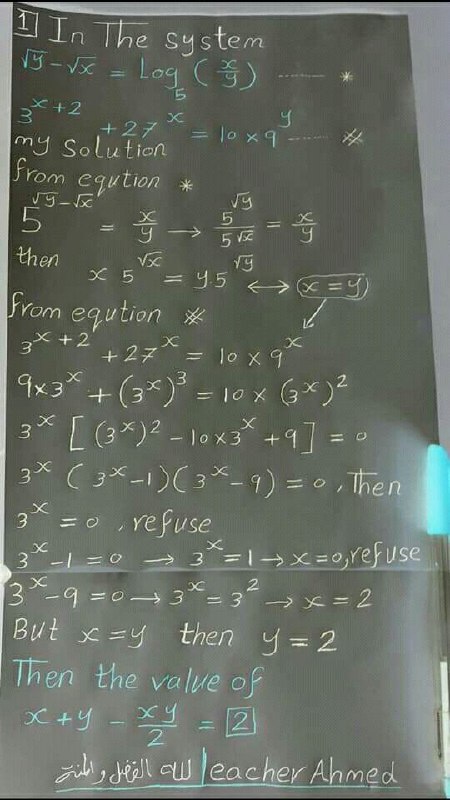 1 In The system
√y - √x = Log₅ (x/y) -------- *
3^(x+2) + 27^x = 10 × 9^y ------ ※
my Solution
from eqution *
5^(√y-√x) = x/y → 5^√y / 5^√x = x/y
then x 5^√x = y 5^√y ↔ (x = y)
from eqution ※
3^(x+2) + 27^x = 10 × 9^x
9×3^x + (3^x)^3 = 10 × (3^x)^2
3^x [ (3^x)^2 - 10×3^x + 9 ] = 0
3^x ( 3^x - 1)( 3^x - 9) = 0 , Then
3^x = 0 , refuse
3^x - 1 = 0 → 3^x = 1 → x = 0, refuse
3^x - 9 = 0 → 3^x = 3^2 → x = 2
But x = y then y = 2
Then the value of
x + y - xy/2 = 2
Teacher Ahmed لله الفضل والمنة